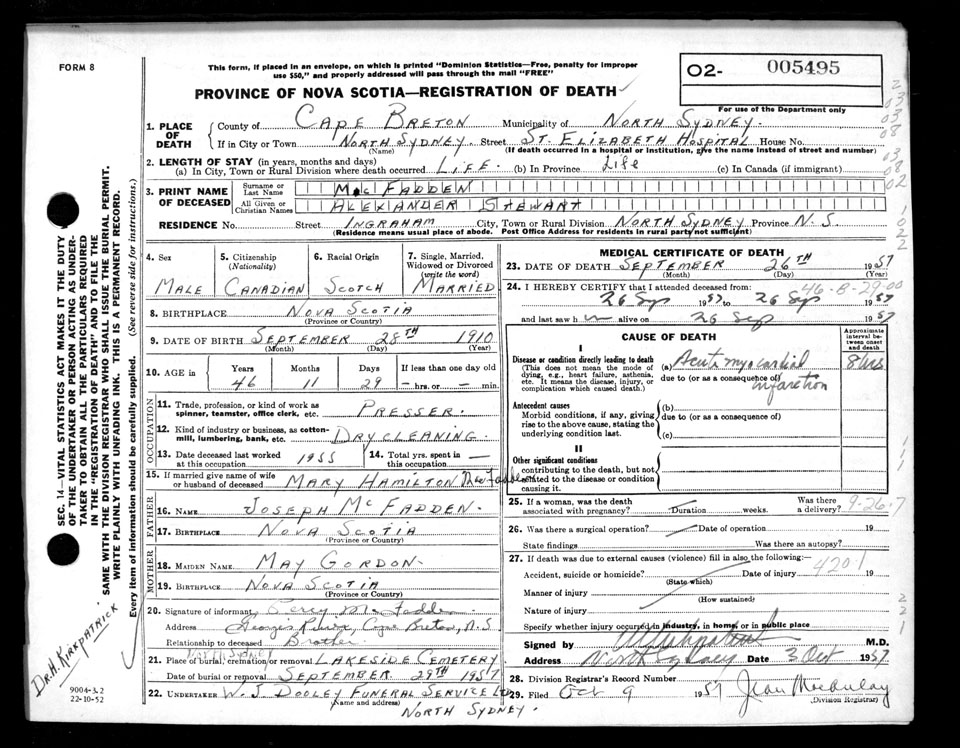 FORM 8
This form, if placed in an envelope, on which is printed "Dominion Statistics—Free, penalty for improper
use $50," and properly addressed will pass through the mail "FREE"
PROVINCE OF NOVA SCOTIA—REGISTRATION OF DEATH
O2- 005495
For use of the Department only
1. PLACE OF DEATH
County of CAPE BRETON Municipality of NORTH SYDNEY.
If in City or Town NORTH SYDNEY. Street ST. ELIZABETH HOSPITAL House No.
(Name) (If death occurred in a hospital or institution, give the name instead of street and number)
2. LENGTH OF STAY (in years, months and days)
(a) In City, Town or Rural Division where death occurred LIFE. (b) In Province Life (c) In Canada (if immigrant)
3. PRINT NAME OF DECEASED
Surname or Last Name McFADDEN
All Given or Christian Names ALEXANDER STEWART
RESIDENCE No. Street INGRAHAM City, Town or Rural Division NORTH SYDNEY Province N. S.
(Residence means usual place of abode. Post Office Address for residents in rural parts not sufficient)
4. Sex 5. Citizenship (Nationality) 6. Racial Origin 7. Single, Married, Widowed or Divorced (write the word)
MALE CANADIAN SCOTCH MARRIED
8. BIRTHPLACE NOVA SCOTIA
(Province or Country)
9. DATE OF BIRTH SEPTEMBER 28TH 1910
(Month) (Day) (Year)
10. AGE Years Months Days If less than one day old
46 11 29 — hrs. or — min.
OCCUPATION
11. Trade, profession, or kind of work as
spinner, teamster, office clerk, etc. PRESSER.
12. Kind of industry or business, as cotton-
mill, lumbering, bank, etc. DRY CLEANING.
13. Date deceased last worked
at this occupation 1955
14. Total yrs. spent in
this occupation —
15. If married give name of wife
or husband of deceased MARY HAMILTON McFadden
FATHER
16. NAME JOSEPH McFADDEN.
17. BIRTHPLACE NOVA SCOTIA
(Province or Country)
MOTHER
18. MAIDEN NAME MAY GORDON.
19. BIRTHPLACE NOVA SCOTIA
(Province or Country)
20. Signature of informant Percy McFadden
Address Georges River, Cape Breton, N.S
Relationship to deceased Brother
NORTH SYDNEY
21. Place of burial, cremation or removal LAKESIDE CEMETERY
Date of burial or removal SEPTEMBER 29TH 1957
22. UNDERTAKER W. J. DOOLEY FUNERAL SERVICE LTD
(Name and address)
NORTH SYDNEY.
MEDICAL CERTIFICATE OF DEATH
23. DATE OF DEATH SEPTEMBER 26TH 1957
(Month) (Day) (Year)
46-8-29-00
24. I HEREBY CERTIFY that I attended deceased from:
26 Sep 1957 to 26 Sep 1957
and last saw h im alive on 26 Sep 1957
CAUSE OF DEATH
Approximate interval between onset and death
I
Disease or condition directly leading to death
(This does not mean the mode of dying, e.g., heart failure, asthenia, etc. It means the disease, injury, or complication which caused death.)
(a) Acute myocardial 8 hrs
due to (or as a consequence of) infarction
Antecedent causes
Morbid conditions, if any, giving rise to the above cause, stating the underlying condition last.
(b)
due to (or as a consequence of)
(c)
II
Other significant conditions
contributing to the death, but not related to the disease or condition causing it.
25. If a woman, was the death
associated with pregnancy? Duration weeks. Was there a delivery?
9-26-7
26. Was there a surgical operation? Date of operation 19
State findings Was there an autopsy?
27. If death was due to external causes (violence) fill in also the following:—
Accident, suicide or homicide? Date of injury 19
(State which)
4201
Manner of injury
(How sustained)
Nature of injury
Specify whether injury occurred in industry, in home, or in public place
Signed by M.D.
Address North Sydney Date 3 Oct 1957
28. Division Registrar's Record Number
29. Filed Oct 9 1957 Jean Macaulay
(Division Registrar)
SEC. 14—VITAL STATISTICS ACT MAKES IT THE DUTY
OF THE UNDERTAKER OR PERSON ACTING AS UNDER-
TAKER TO OBTAIN ALL THE PARTICULARS REQUIRED
IN THE "REGISTRATION OF DEATH" AND TO FILE THE
SAME WITH THE DIVISION REGISTRAR WHO SHALL ISSUE THE BURIAL PERMIT.
WRITE PLAINLY WITH UNFADING INK. THIS IS A PERMANENT RECORD.
Every item of information should be carefully supplied. (See reverse side for instructions.)
DR. H. KIRKPATRICK
9004-3.2
22-10-52